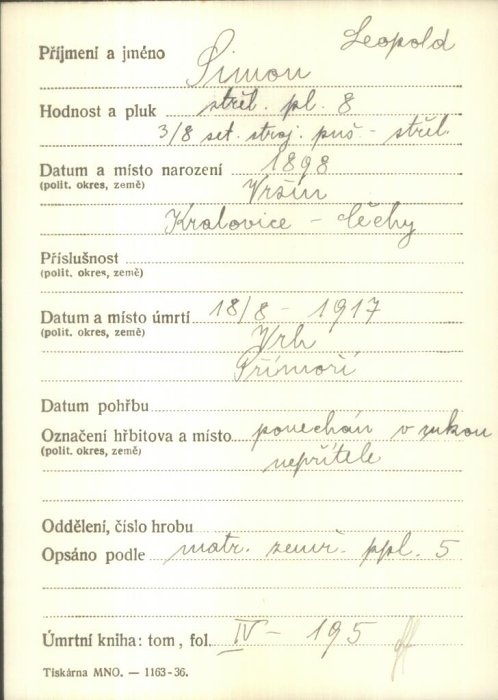 Leopold
Příjmení a jméno Šimon
Hodnost a pluk střel. pl. 8
3/8 set. stroj. puš - střel.
Datum a místo narození 1898
(polit. okres, země) Vršín
Kralovice - Čechy
Příslušnost
(polit. okres, země)
Datum a místo úmrtí 18/8 - 1917
(polit. okres, země) Vrh
Přímoří
Datum pohřbu
Označení hřbitova a místo ponechán v rukou
(polit. okres, země) nepřítele
Oddělení, číslo hrobu
Opsáno podle matr. zemř. ppl. 5
Úmrtní kniha: tom, fol. IV - 195
Tiskárna MNO. — 1163-36.